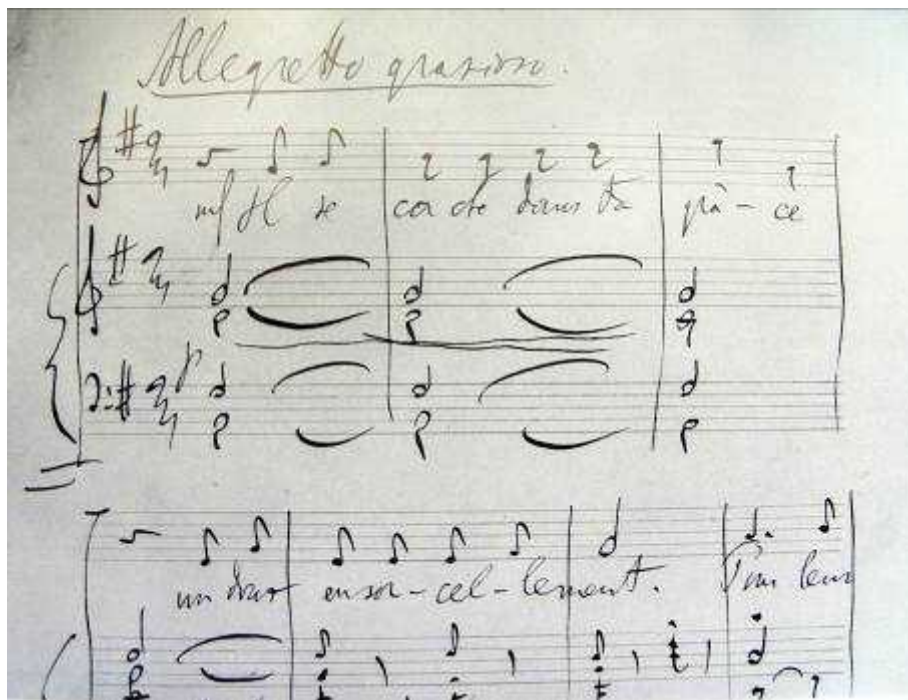 Allegretto grazioso.
mf Il se ca che dans ta grâ - ce
p
un doux en sor - cel - lement. Tous leurs